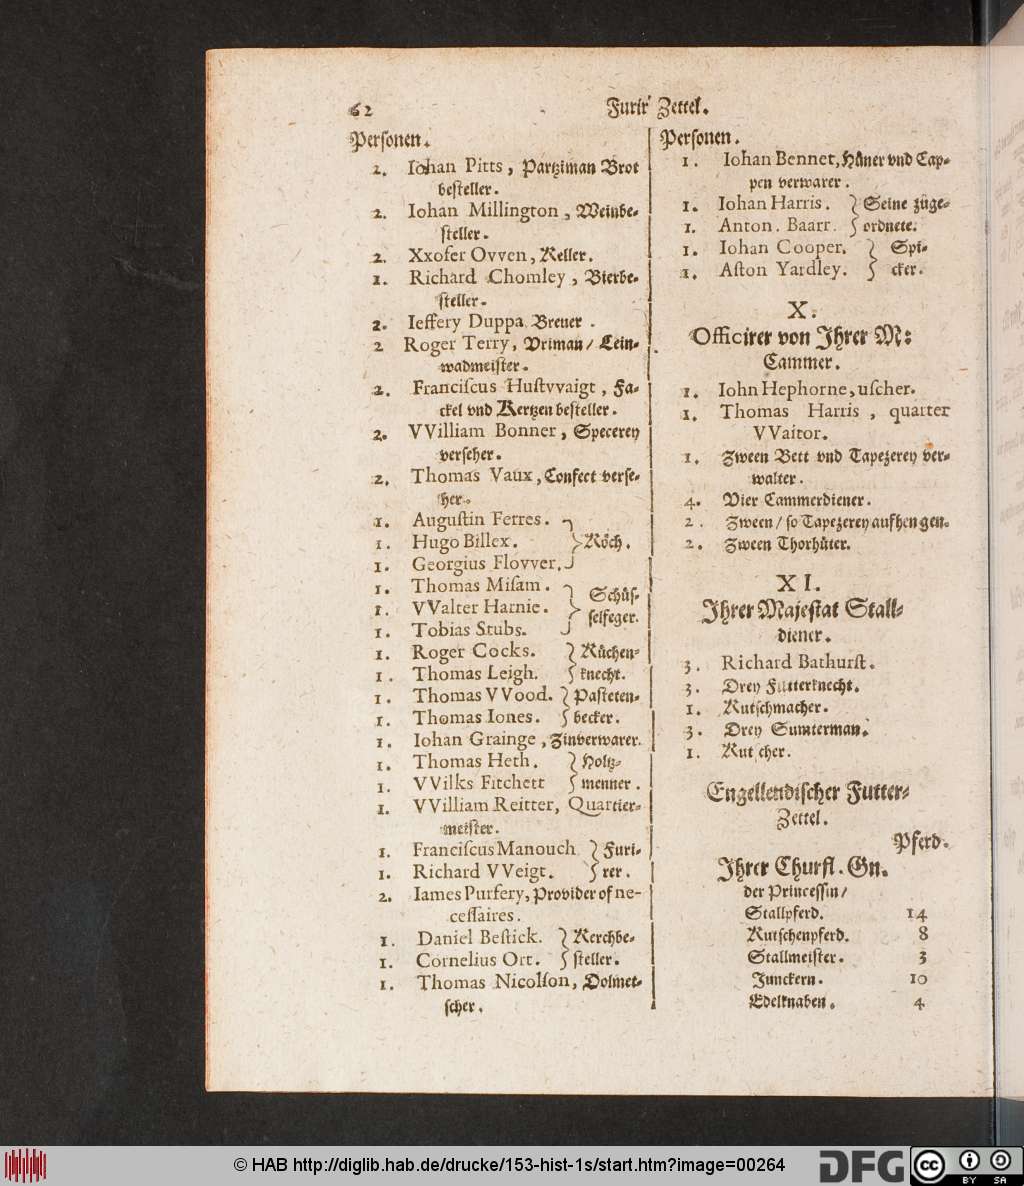 62
Furir Zettel.
Personen.
2. Iohan Pitts, Partziman Brot
besteller.
2. Iohan Millington, Weinbe-
steller.
2. Xxofer Ovven, Keller.
1. Richard Chomley, Bierbe-
steller.
2. Ieffery Duppa Breuer.
2 Roger Terry, Vriman/ Lein-
wadmeister.
2. Franciſcus Huſtvvaigt, Fa-
ckel vnd Kertzen besteller.
2. VVilliam Bonner, Specerey
verseher.
2. Thomas Vaux, Confect verse-
her.
1. Auguſtin Ferres.
1. Hugo Billex. } Köch.
1. Georgius Flovver.
1. Thomas Miſam. Schüs-
1. VValter Harnie. } selfeger.
1. Tobias Stubs.
1. Roger Cocks. } Küchen-
1. Thomas Leigh. } knecht.
1. Thomas VVood. } Pasteten-
1. Thomas Iones. } becker.
1. Iohan Grainge, Zinverwarer.
1. Thomas Heth. } Holtz-
1. VVilks Fitchett } menner.
1. VVilliam Reitter, Quartier-
meister.
1. Franciſcus Manouch } Furi-
1. Richard VVeigt. } rer.
2. Iames Purfery, Provider of ne-
ceſſaires.
1. Daniel Beſtick. } Kerchbe-
1. Cornelius Ort. } steller.
1. Thomas Nicolſon, Dolmet-
scher.
Personen.
1. Iohan Bennet, Hüner vnd Cap-
pen verwarer.
1. Iohan Harris. } Seine züge-
1. Anton. Baarr. } ordnete.
1. Iohan Cooper. } Spi-
1. Aſton Yardley. } cker.
X.
Officirer von Ihrer M:
Cammer.
1. Iohn Hephorne, uſcher.
1. Thomas Harris, quarter
VVaitor.
1. Zween Bett vnd Tapezerey ver-
walter.
4. Vier Cammerdiener.
2. Zween/ so Tapezerey aufhengen.
2. Zween Thorhüter.
XI.
Ihrer Majestat Stall-
diener.
3. Richard Bathurſt.
3. Drey Futterknecht.
1. Kutschmacher.
3. Drey Sumterman.
1. Kutscher.
Engellendischer Futter-
Zettel.
Pferd.
Ihrer Churfl. Gn.
der Princessin/
Stallpferd. 14
Kutschenpferd. 8
Stallmeister. 3
Junckern. 10
Edelknaben. 4
© HAB http://diglib.hab.de/drucke/153-hist-1s/start.htm?image=00264
DFG
cc
BY SA